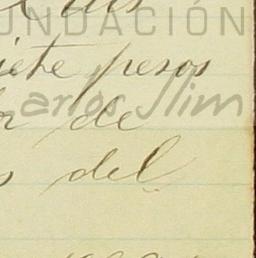 UNDACIÓN
iete pesos
arlos Slim
r de
s del